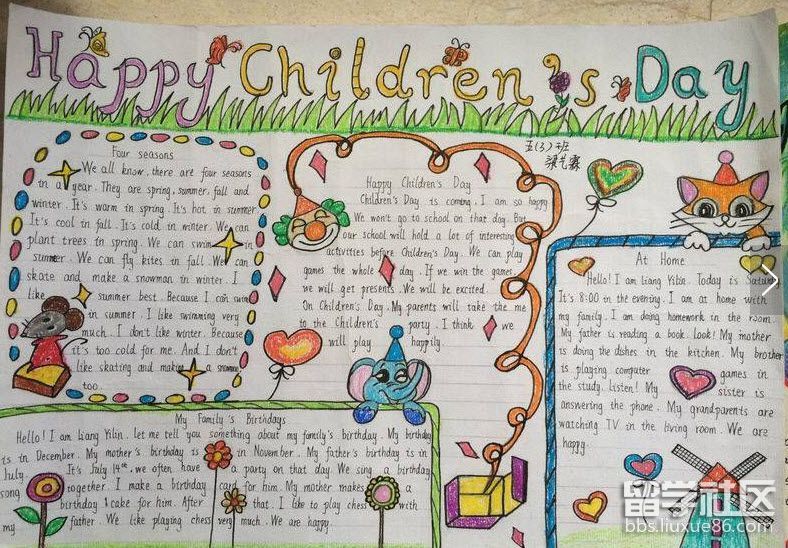 Happy Children's Day
五(3)班
Four seasons
We all know, there are four seasons
in a year. They are spring, summer, fall and
winter. It's warm in spring. It's hot in summer
It's cool in fall. It's cold in winter. We can
plant trees in spring. We can swim in
summer. We can fly kites in fall. We can
skate and make a snowman in winter. I
like summer best. Because I can swim
in summer. I like swimming very
much. I don't like winter. Because
it's too cold for me. And I don't
like skating and making a snowman
too.
Happy Children's Day
Children's Day is coming. I am so happy
We won't go to school on that day. But
our school will hold a lot of interesting
activities before Children's Day. We can play
games the whole day. If we win the games,
we will get presents. We will be excited.
On Children's Day. My parents will take me
to the Children's party. I think we
will play happily.
At Home
Hello! I am Liang Yilin. Today is
It's 8:00 in the evening. I am at home with
my family. I am doing homework in the room.
My father is reading a book. Look! My mother
is doing the dishes in the kitchen. My brother
is playing computer games in
the study. Listen! My sister is
answering the phone. My grandparents are
watching TV in the living room. We are
happy.
My Family's Birthdays
Hello! I am Liang Yilin. Let me tell you something about my family's birthday. My birthday
is in December. My mother's birthday is in November. My father's birthday is in
July. It's July 14th, we often have a party on that day. We sing a birthday
song together. I make a birthday card for him. My mother makes a
birthday cake for him. After that. I like to play chess with
my father. We like playing chess very much. We are happy.
留学社区
bbs.liuxue86.com